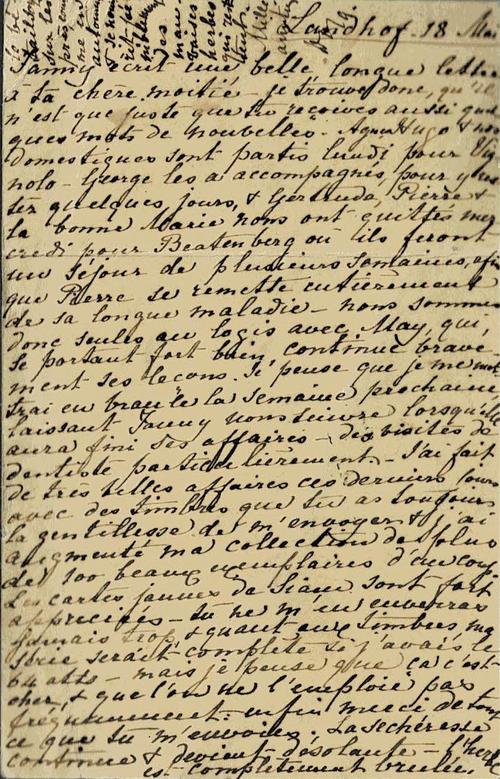 Landhof 18 Mai
Fanny écrit une belle longue lettre
à ta chère moitié – je trouve donc, qu'il
n'est que juste que tu reçoives aussi quel
ques mots de nouvelles. Agnes Hugo & nos
domestiques sont partis lundi pour
nolo – George les a accompagnés, pour y
ter quelques jours, & Gertrude, Pierre &
la bonne Marie nous ont quittés mer
credi pour Beatenberg où ils feront
un séjour de plusieurs semaines, afin
que Pierre se remette entièrement
de sa longue maladie – nous sommes
donc seules au logis avec May, qui,
se portant fort bien, continue brave
ment ses leçons. Je pense que je me met
trai en branle la semaine prochaine
laissant Fanny nous suivre lorsqu'elle
aura fini ses affaires – des visites de
dentiste particulièrement – J'ai fait
de très belles affaires ces derniers jours
avec des timbres que tu as toujours
la gentillesse de m'envoyer & j'ai
augmenté ma collection de plus
de 100 beaux exemplaires d'un coup
Les cartes jaunes de Siam sont fort
appréciées – tu ne m'en enverras
jamais trop, & quant aux timbres, ma
série serait complète si j'avais le
64 atts – mais je pense que ça c'est
cher, & que l'on ne l'emploie pas
fréquemment. enfin merci de tout
ce que tu m'envoies. La sécheresse
continue & devient désolante – l'herbe
est complètement brulée.